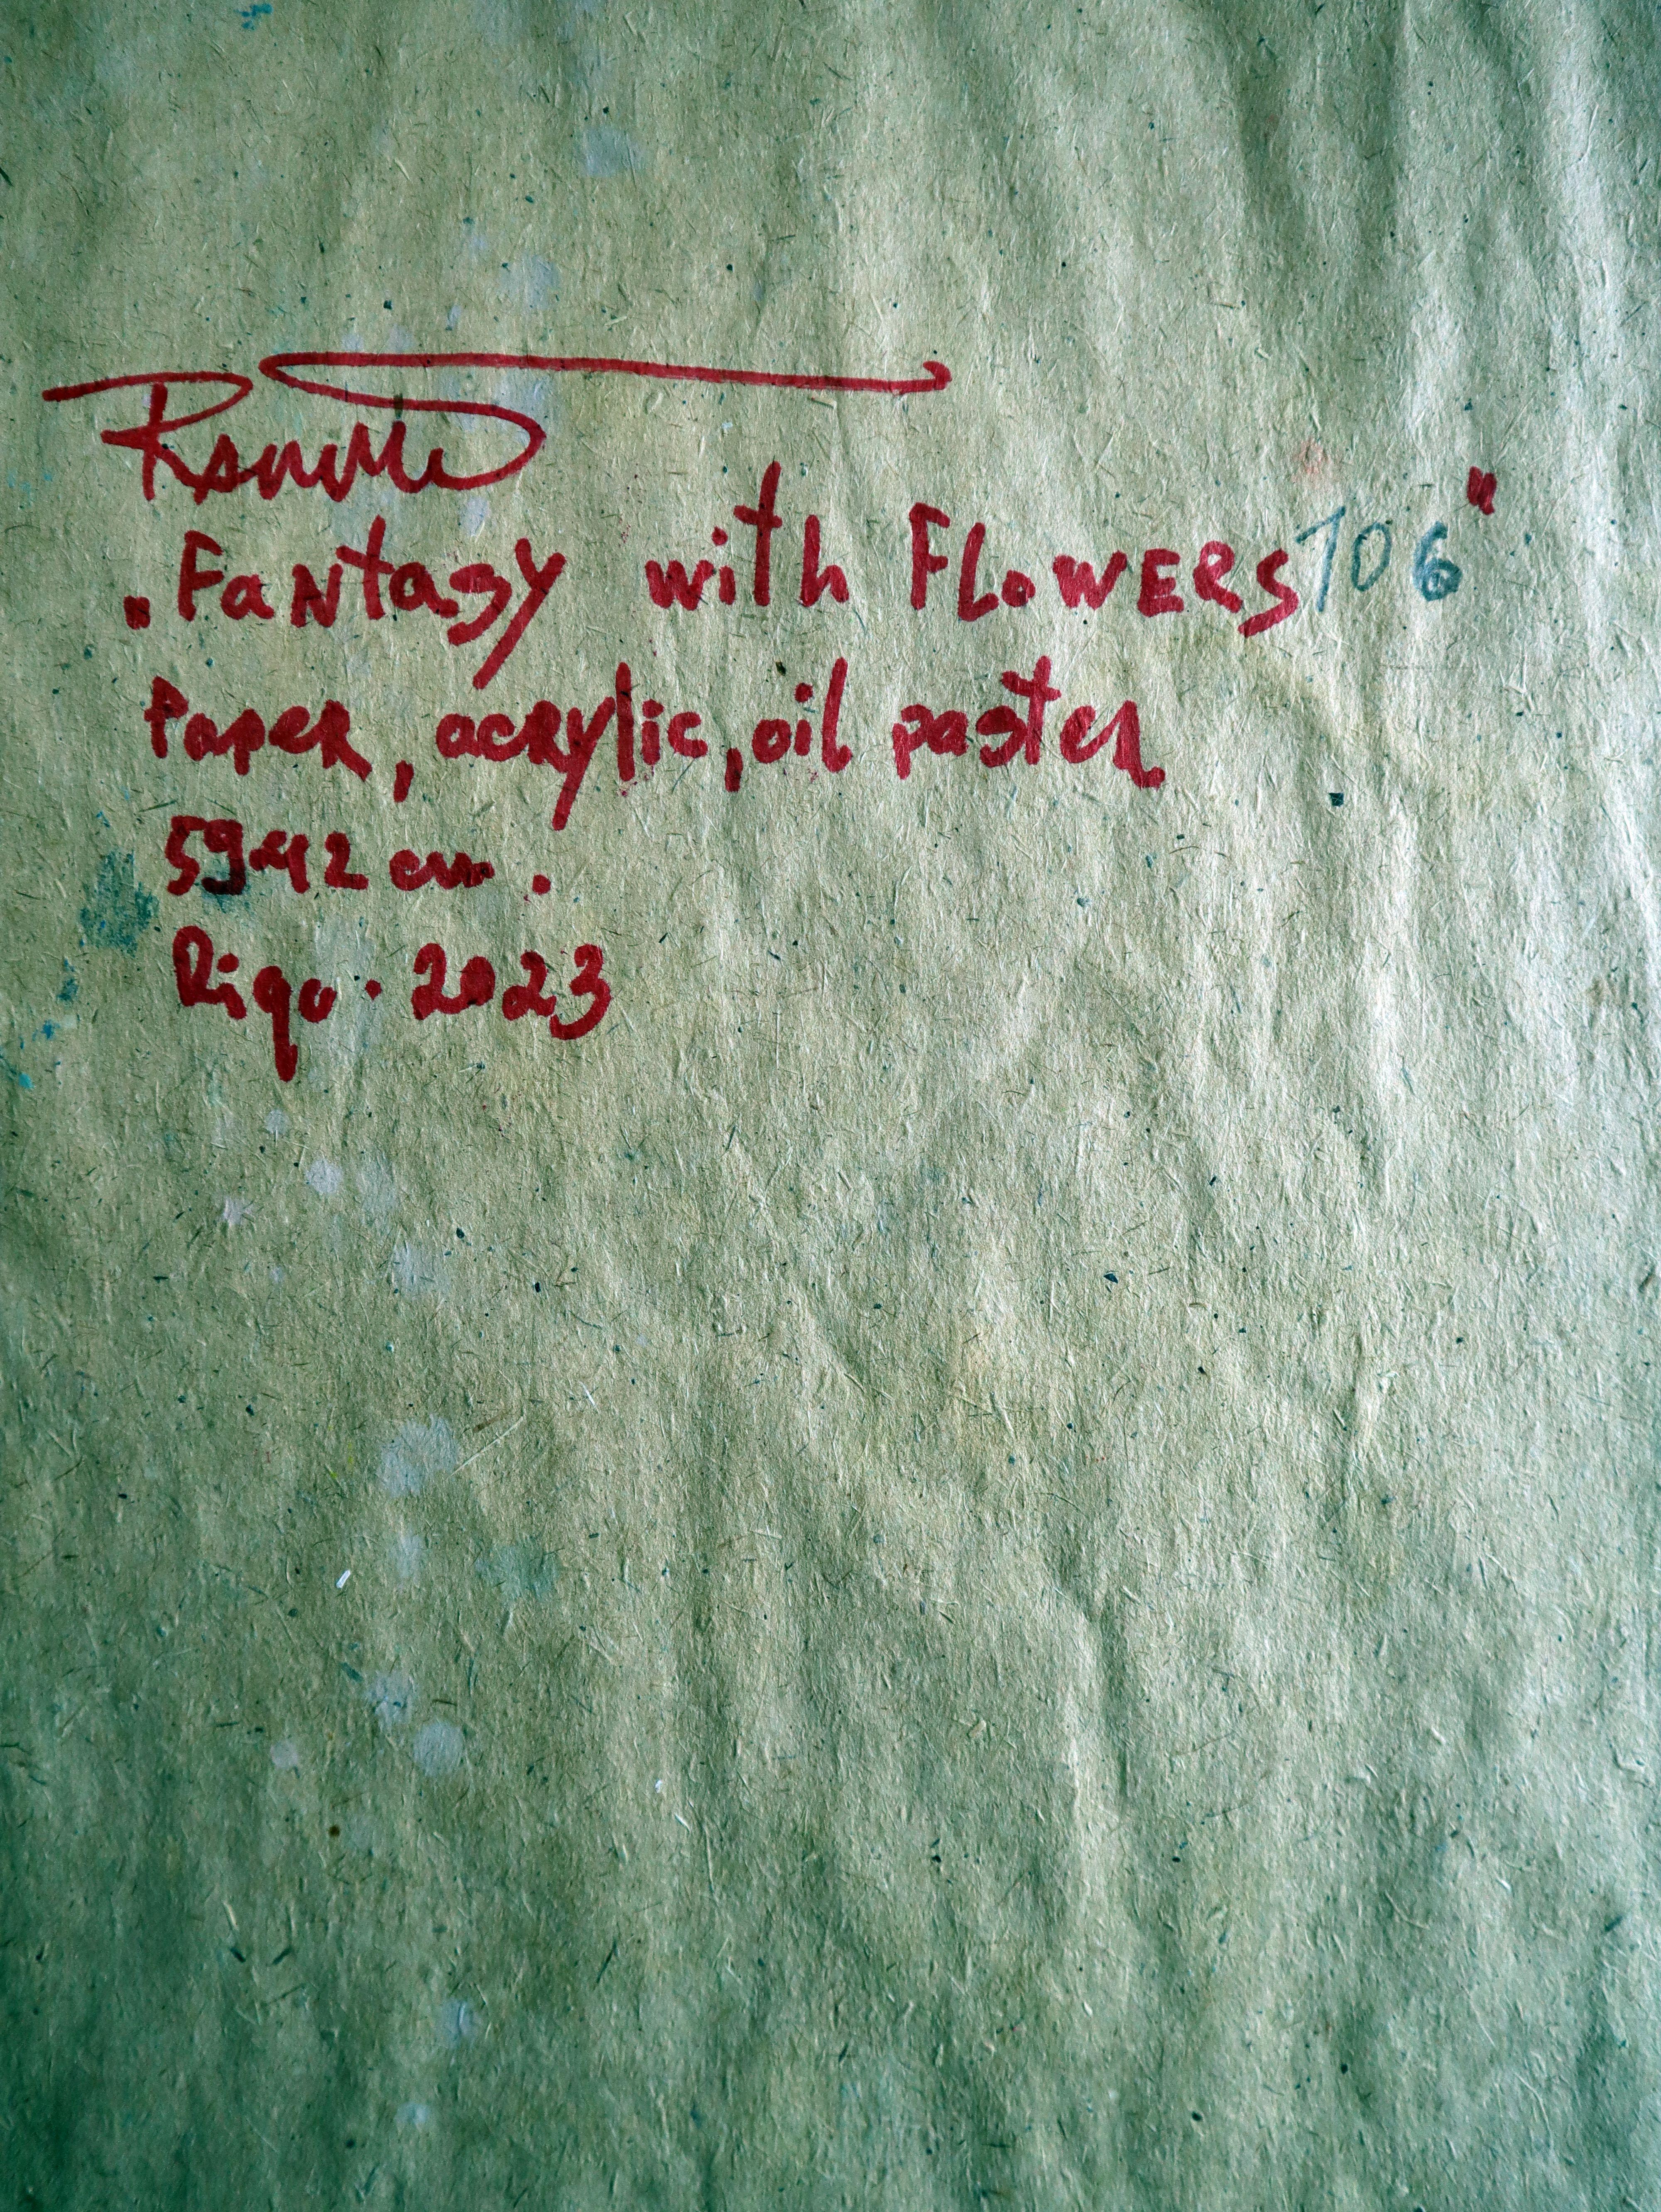 „Fantasy with FLOWERS 106"
Paper, acrylic, oil paster
59x42 cm.
Riga. 2023